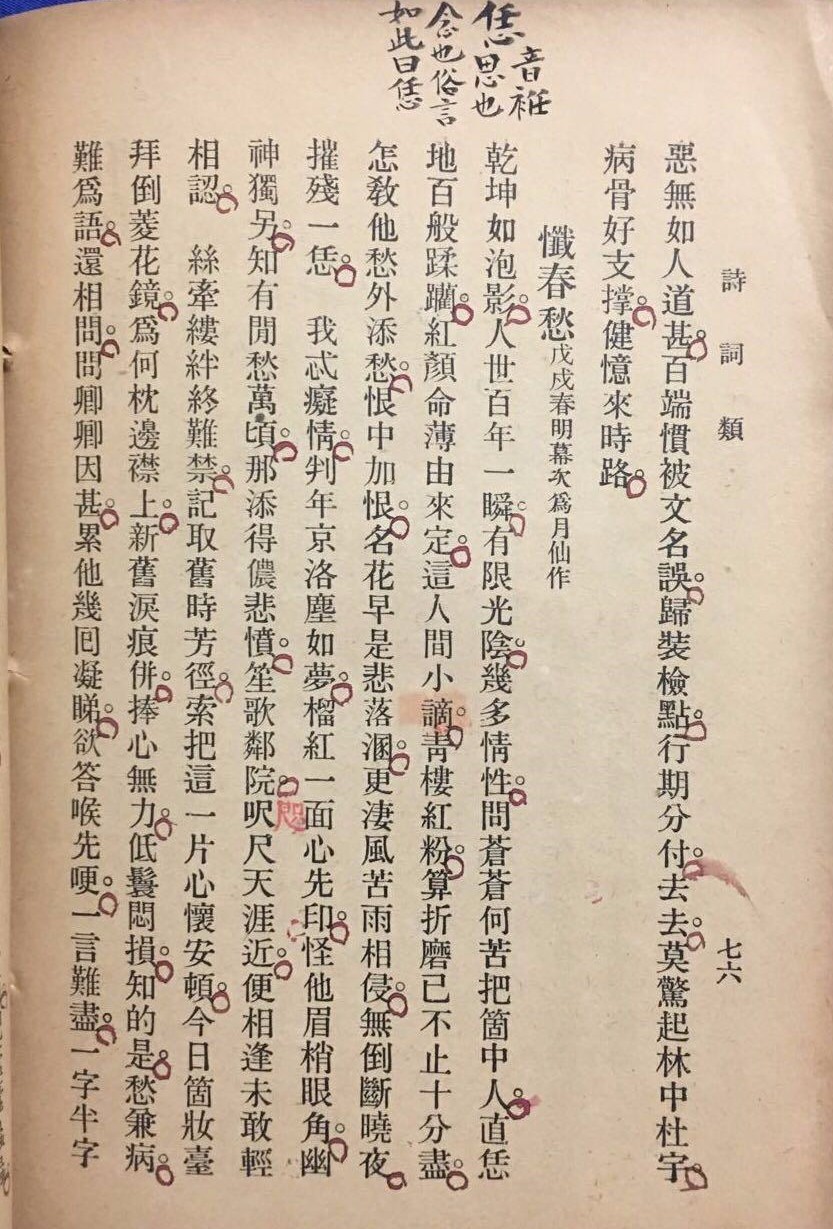 恁音袵
思也
念也俗言
如此曰恁
詩詞類
七六
惡無如人道甚。百端慣被文名誤。歸裝檢點。行期分付。去去。莫驚起林中杜宇。
病骨好支撐。健憶來時路。
懺春愁戊戌春明幕次爲月仙作
乾坤如泡影。人世百年一瞬。有限光陰。幾多情性。問蒼蒼何苦把箇中人。直恁
地百般蹂躪。紅顏命薄由來定。這人間小謫。靑樓紅粉。算折磨已不止十分盡。
怎敎他愁外添愁。恨中加恨。名花早是悲落溷。更淒風苦雨相侵。無倒斷曉夜
摧殘一恁。　我忒癡情。判年京洛塵如夢。榴紅一面心先印。怪他眉梢眼角。幽
神獨另。知有閒愁萬頃。那添得儂悲憤。笙歌鄰院。呎尺天涯近。便相逢未敢輕
相認。　絲牽縷絆終難禁。記取舊時芳徑。索把這一片心懷安頓。今日箇妝臺
拜倒菱花鏡。爲何枕邊襟上。新舊淚痕併。捧心無力。低鬟悶損。知的是。愁兼病。
難爲語。還相問。問卿卿因甚。累他幾囘凝睇。欲答喉先哽。一言難盡。一字半字
咫